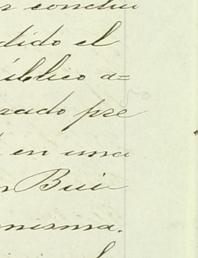 conclui
dido el
úblico a=
rado pre
en una
Bui
misma.